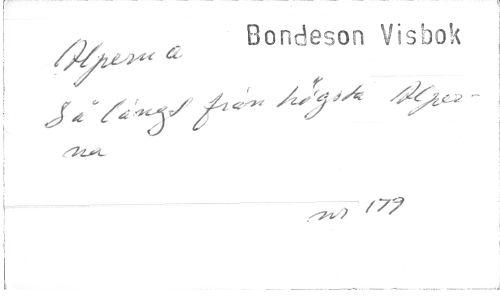 Bondeson Visbok
Alperna
Så långt från högsta Alper-
na
nr 179